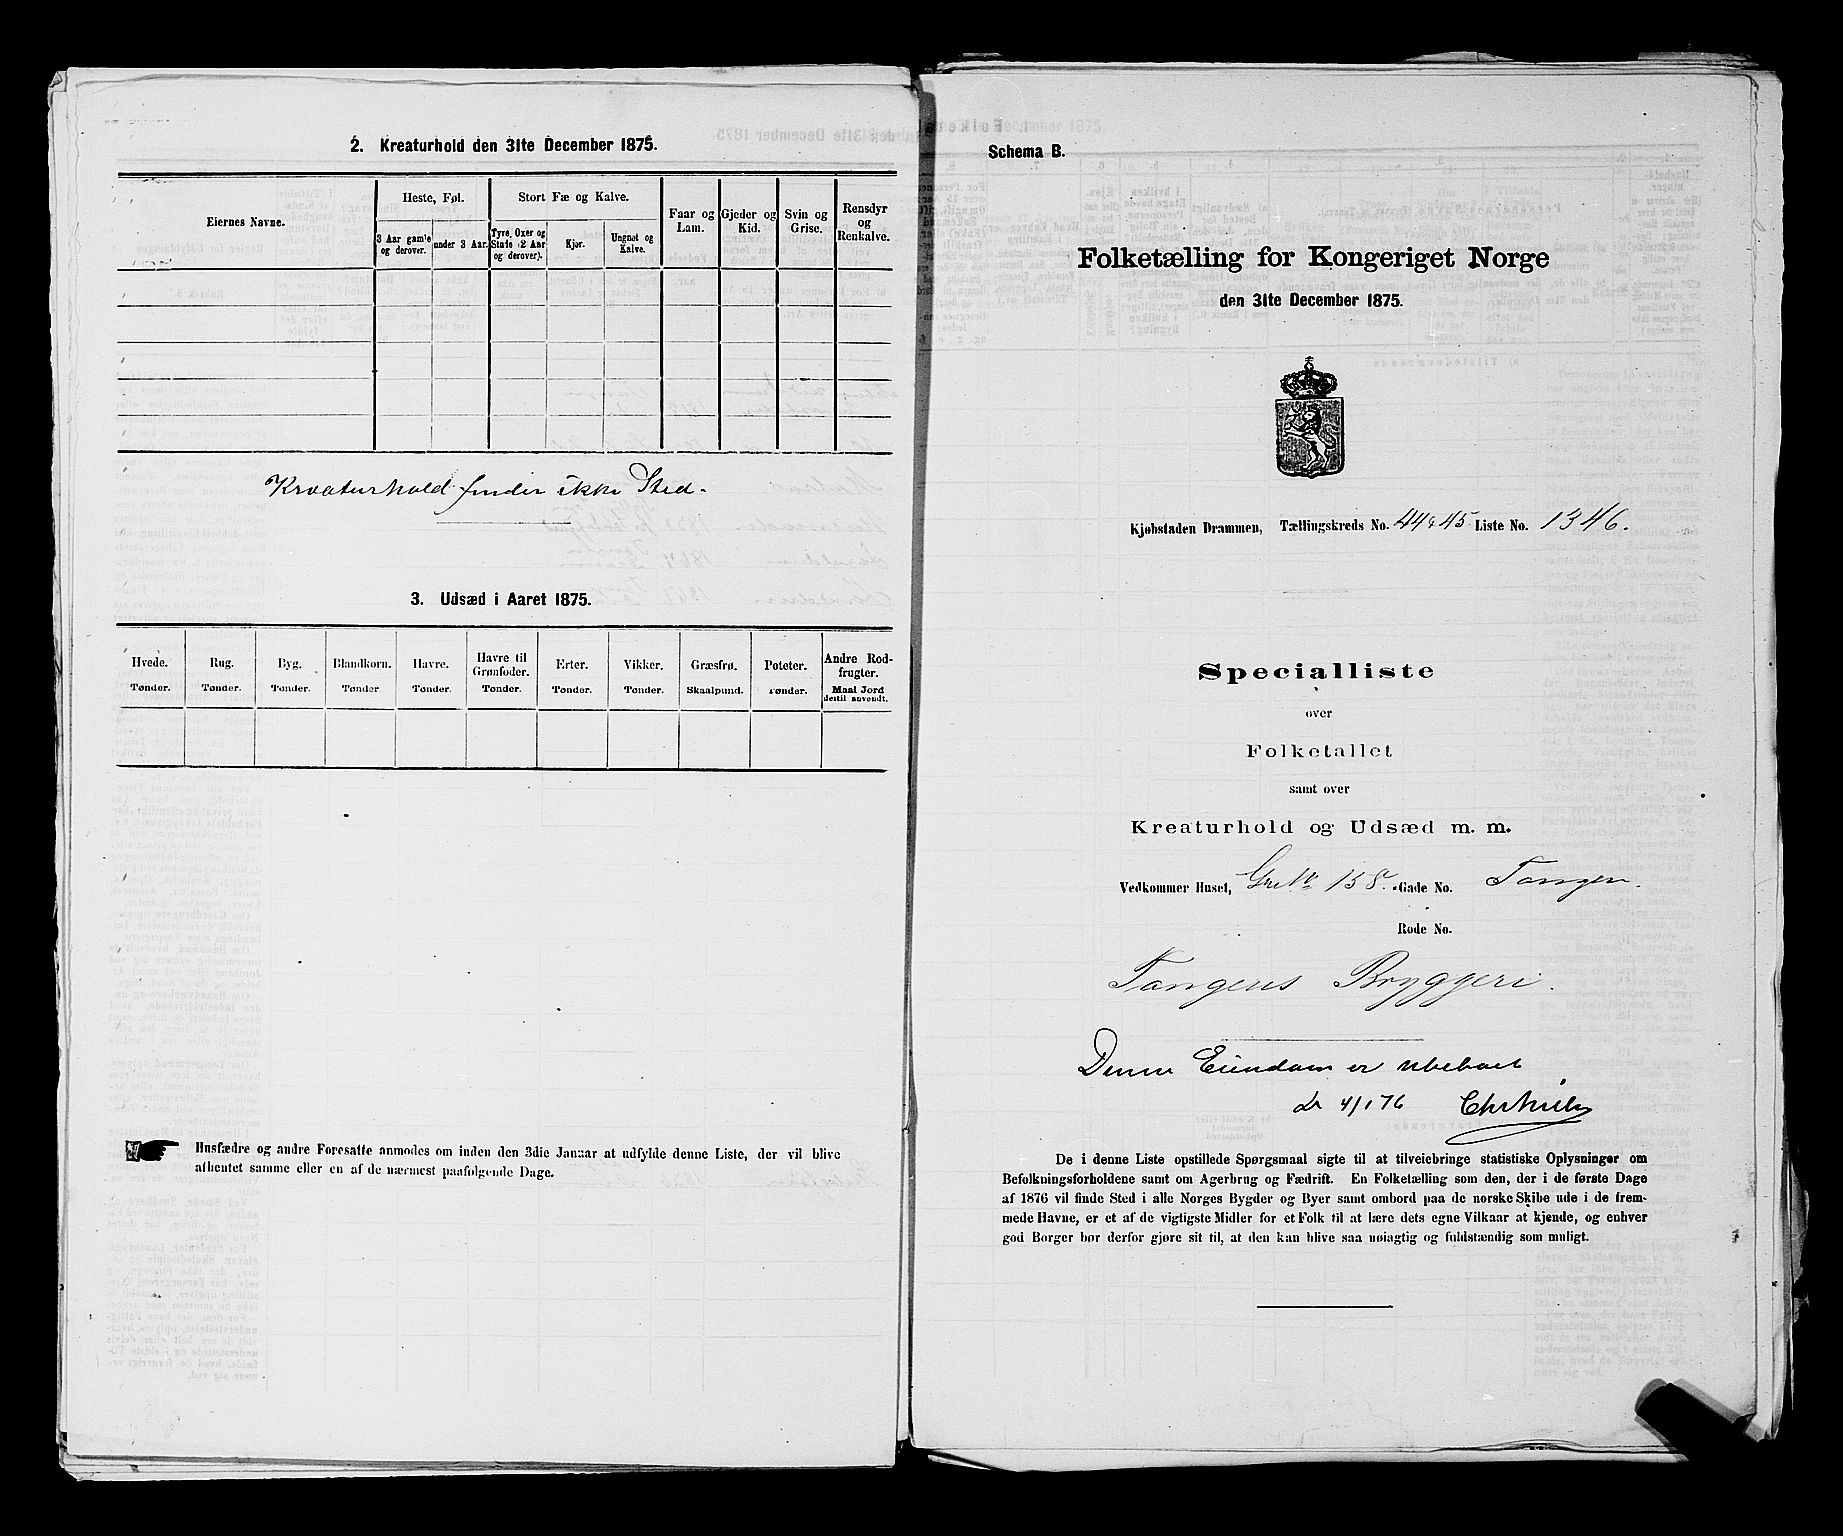 2. Kreaturhold den 31te December 1875.
Eiernes Navne.
Heste, Føl.
3 Aar gamle og derover.
under 3 Aar.
Stort Fæ og Kalve.
Tyre, Oxer og Stude (2 Aar og derover).
Kjør.
Ungnøt og Kalve.
Faar og Lam.
Gjeder og Kid.
Svin og Grise.
Rensdyr og Renkalve.
Kreaturhold finder ikke Sted.
3. Udsæd i Aaret 1875.
Hvede. Rug. Byg. Blandkorn. Havre. Havre til Grønfoder. Erter. Vikker. Græsfrø. Poteter. Andre Rodfrugter.
Tønder. Tønder. Tønder. Tønder Tønder. Tønder. Tønder. Tønder. Skaalpund. Tønder. Maal Jord dertil anvendt.
Husfædre og andre Foresatte anmodes om inden den 3die Januar at udfylde denne Liste, der vil blive
afhentet samme eller en af de nærmest paafølgende Dage.
Schema B.
Folketælling for Kongeriget Norge
den 31te December 1875.
Kjøbstaden Drammen, Tællingskreds No. 44 & 45 Liste No. 1346.
Specialliste
over
Folketallet
samt over
Kreaturhold og Udsæd m. m.
Vedkommer Huset, Gr No 158. Gade No. Tangen.
Rode No.
Tangens Bryggeri.
Denne Eiendom er ubeboet
Dr 4/1 76
De i denne Liste opstillede Spørgsmaal sigte til at tilveiebringe statistiske Oplysninger om
Befolkningsforholdene samt om Agerbrug og Fædrift. En Folketælling som den, der i de første Dage
af 1876 vil finde Sted i alle Norges Bygder og Byer samt ombord paa de norske Skibe ude i de frem-
mede Havne, er et af de vigtigste Midler for et Folk til at lære dets egne Vilkaar at kjende, og enhver
god Borger bør derfor gjøre sit til, at den kan blive saa nøiagtig og fuldstændig som muligt.